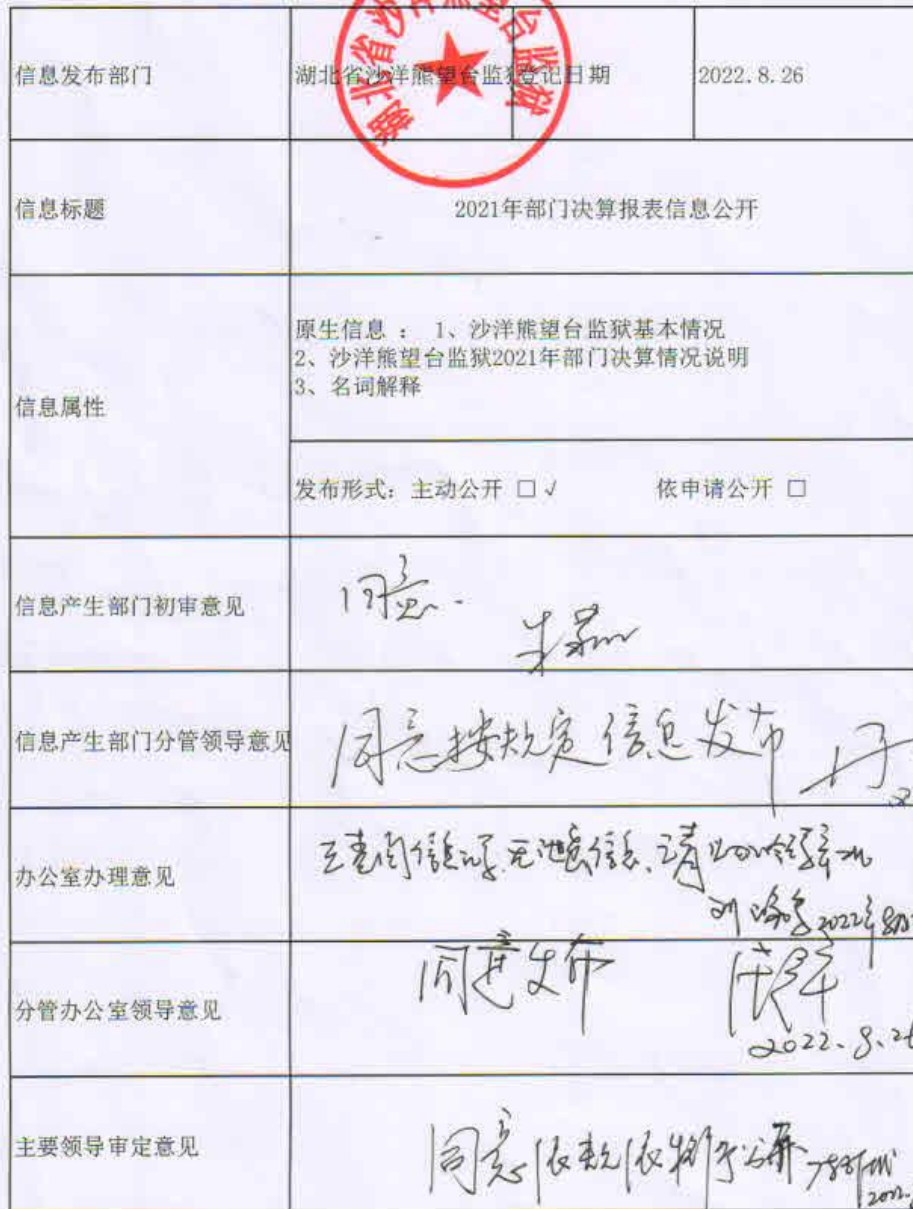 湖北省沙洋熊望台监狱
信息发布部门 湖北省沙洋熊望台监狱 登记日期 2022.8.26
信息标题 2021年部门决算报表信息公开
信息属性
原生信息 : 1、沙洋熊望台监狱基本情况
2、沙洋熊望台监狱2021年部门决算情况说明
3、名词解释
发布形式: 主动公开 □√ 依申请公开 □
信息产生部门初审意见 同意.
信息产生部门分管领导意见 同意按规定信息发布
办公室办理意见
2022年
分管办公室领导意见 同意发布
2022.8.26
主要领导审定意见 同意依规依